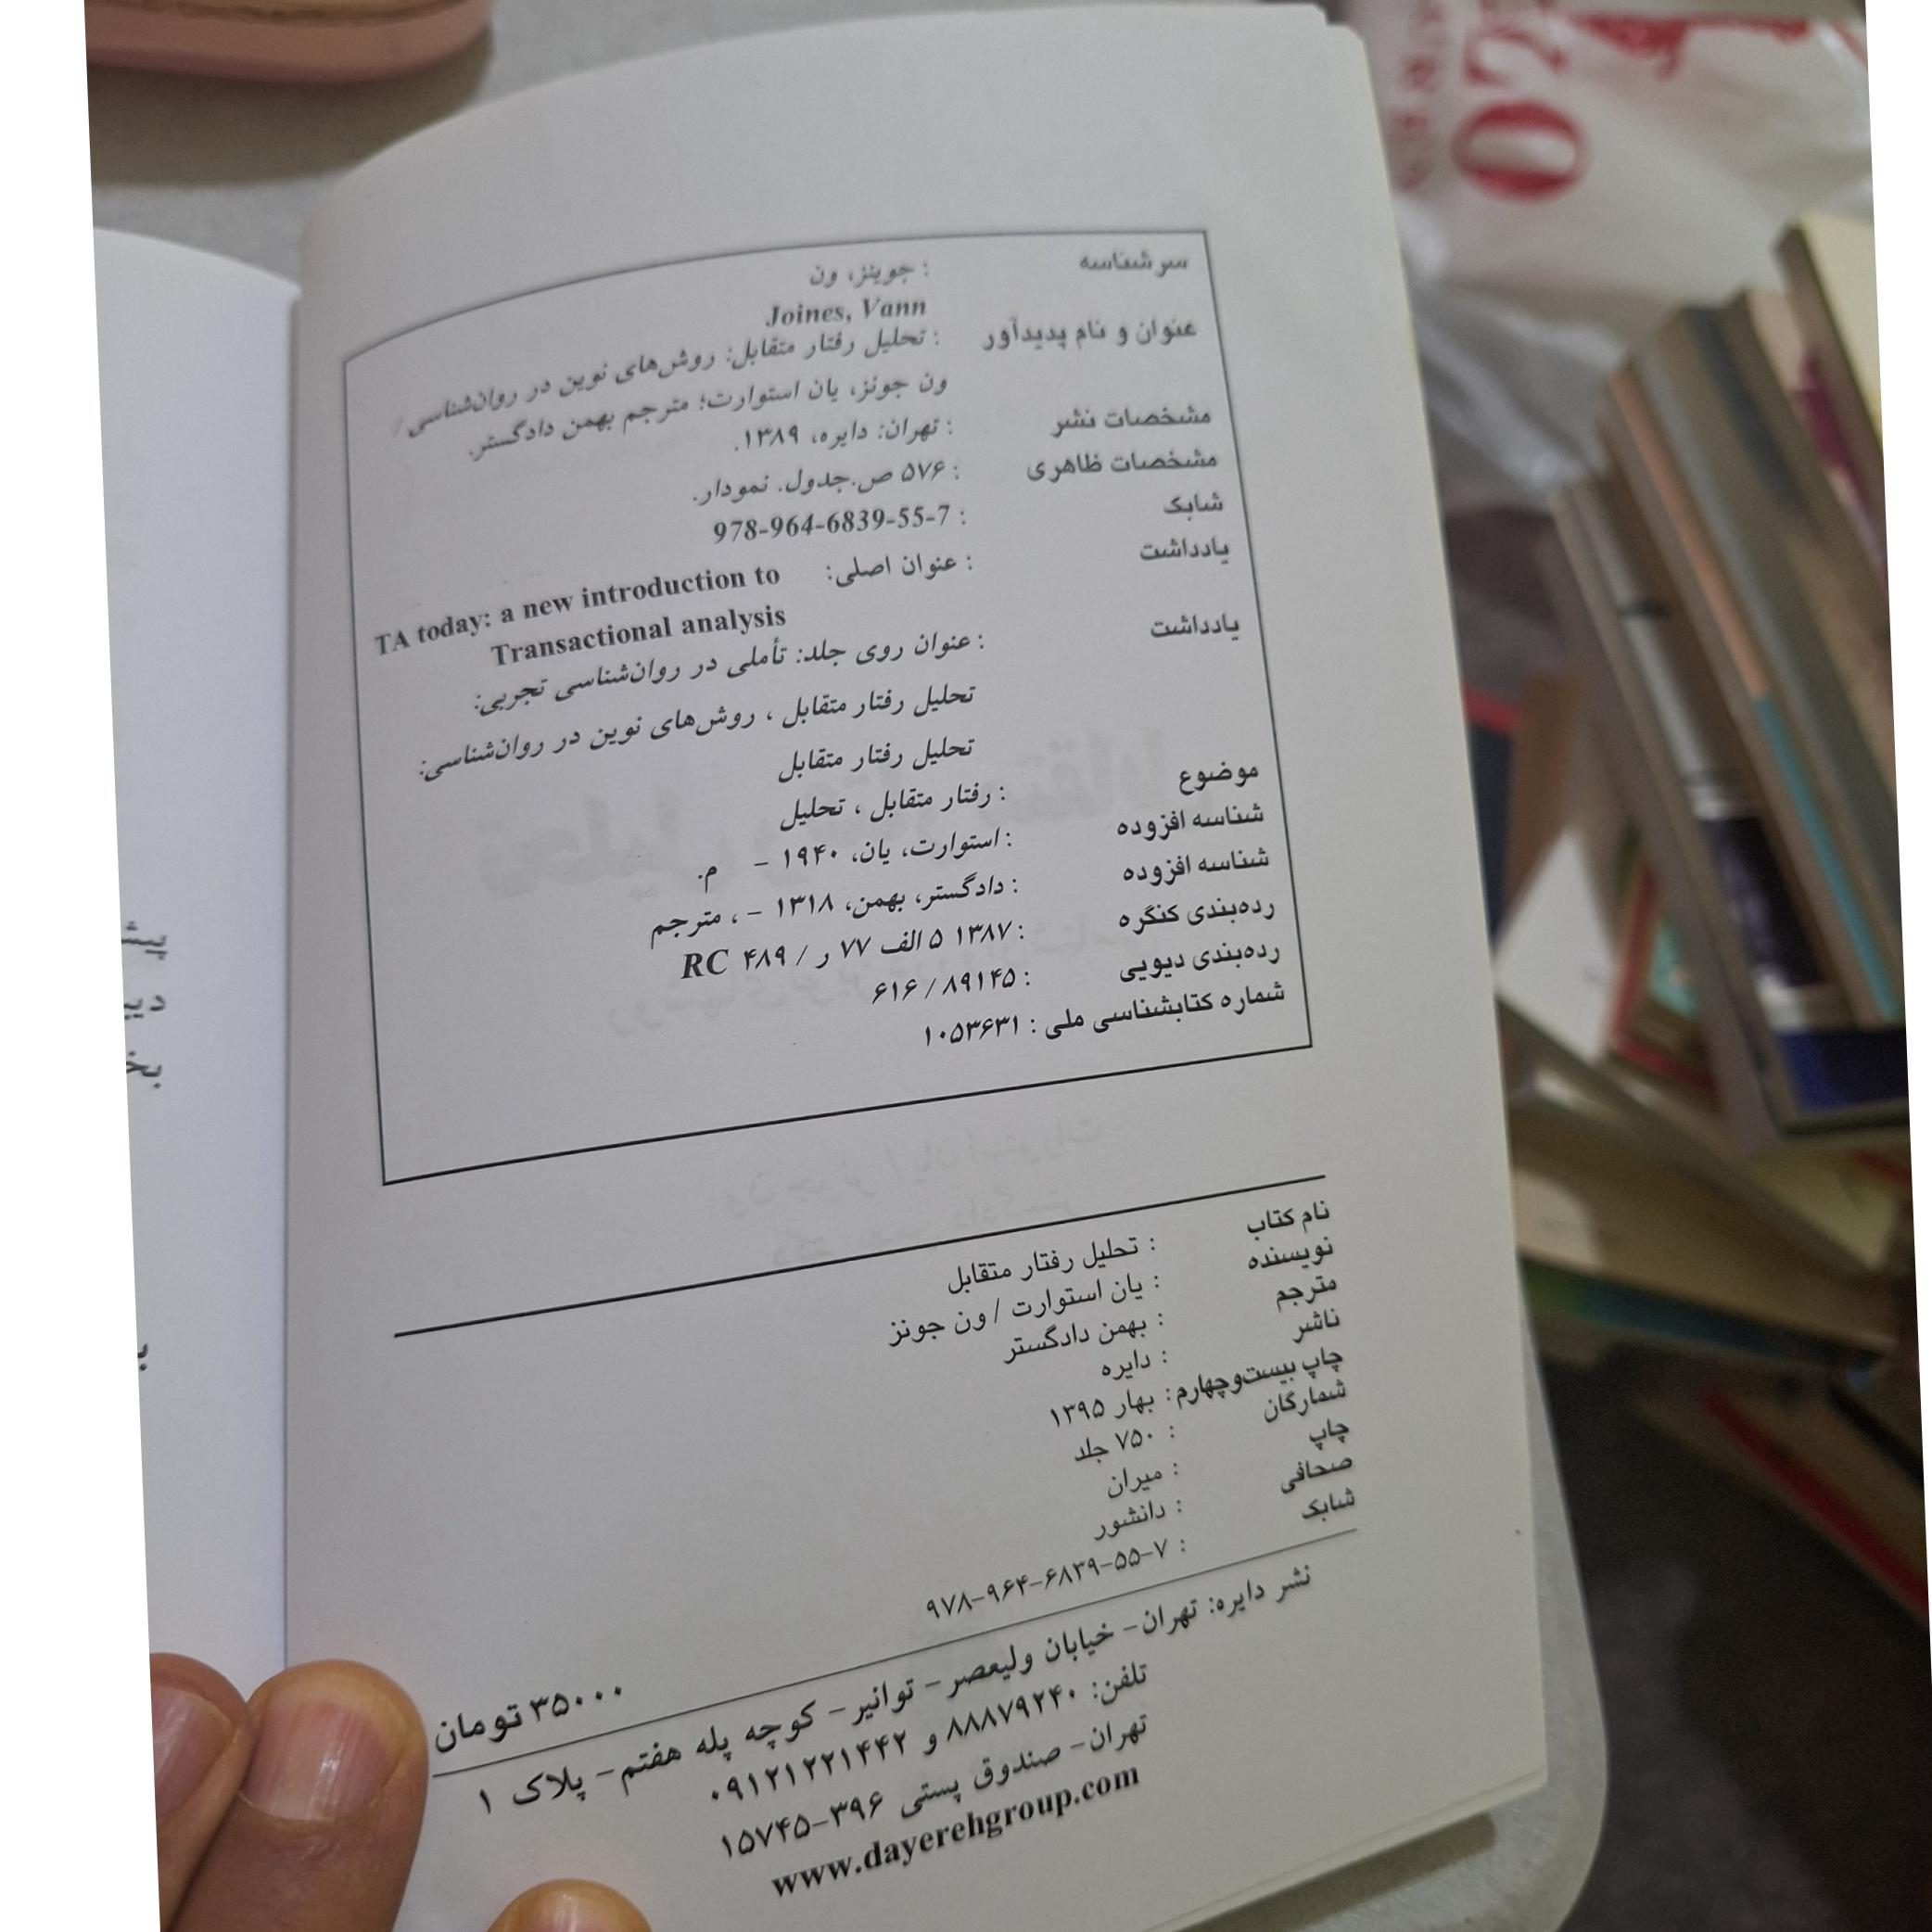 سرشناسه : جوینز، ون
Joines, Vann
عنوان و نام پدیدآور : تحلیل رفتار متقابل: روش‌های نوین در روان‌شناسی /
ون جونز، یان استوارت؛ مترجم بهمن دادگستر.
مشخصات نشر : تهران: دایره، ۱۳۸۹.
مشخصات ظاهری : ۵۷۶ ص.جدول. نمودار.
شابک : 978-964-6839-55-7
یادداشت : عنوان اصلی: TA today: a new introduction to
Transactional analysis
یادداشت : عنوان روی جلد: تأملی در روان‌شناسی تجربی:
تحلیل رفتار متقابل ، روش‌های نوین در روان‌شناسی:
تحلیل رفتار متقابل
موضوع : رفتار متقابل ، تحلیل
شناسه افزوده : استوارت، یان، ۱۹۴۰ - م.
شناسه افزوده : دادگستر، بهمن، ۱۳۱۸ - ، مترجم
رده‌بندی کنگره : ۱۳۸۷ ۵ الف ۷۷ ر / ۴۸۹ RC
رده‌بندی دیویی : ۶۱۶/۸۹۱۴۵
شماره کتابشناسی ملی : ۱۰۵۳۶۳۱
نام کتاب : تحلیل رفتار متقابل
نویسنده : یان استوارت / ون جونز
مترجم : بهمن دادگستر
ناشر : دایره
چاپ بیست‌وچهارم : بهار ۱۳۹۵
شمارگان : ۷۵۰ جلد
چاپ : میران
صحافی : دانشور
شابک : ۹۷۸-۹۶۴-۶۸۳۹-۵۵-۷
۳۵۰۰۰ تومان
نشر دایره: تهران- خیابان ولیعصر- توانیر- کوچه پله هفتم- پلاک ۱
تلفن: ۸۸۸۷۹۲۴۰ و ۰۹۱۲۱۲۲۱۴۴۲
تهران- صندوق پستی ۳۹۶-۱۵۷۴۵
www.dayerehgroup.com